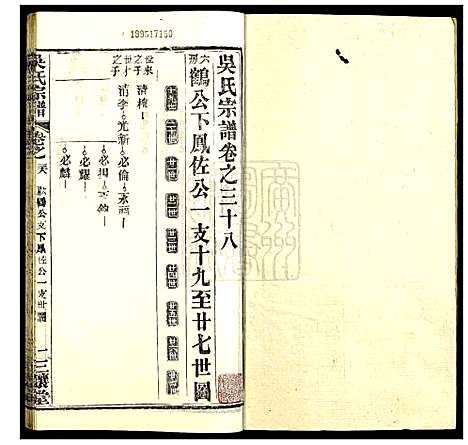 199517160
吳氏宗譜卷之三十八
六房鶴公下鳳佐公一支十九至廿七世
十九世
二十世
廿一世
廿二世
廿三世
廿四世
廿五世
廿六世
廿七世
世來之子
清
世才之子
清李
光新
必倫
永福
必揚
必耀
必麟
吳氏宗譜
卷之
鶴公支下鳳佐公一支世譜
一
三讓堂